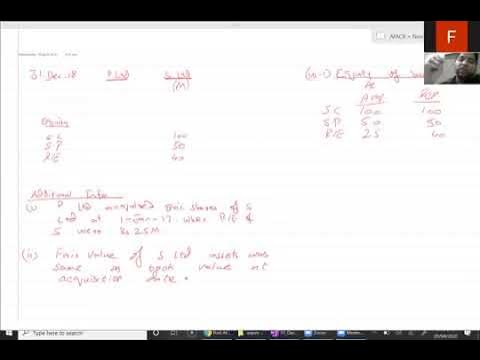 31 Dec 18 P Ltd S Ltd
(M)
Equity
S.C 100
S.P 50
R/E 40
Additional Info
(i) P Ltd acquired shares of S
Ltd at 1-Jan-17 when R/E of
S were Rs 25M
(ii) Fair value of S Ltd assets was
same as book value at
acquisition date.
(W-1) Equity of
At
Acq
S.C 100 100
S.P 50 50
R/E 25 40
F
Type here to search